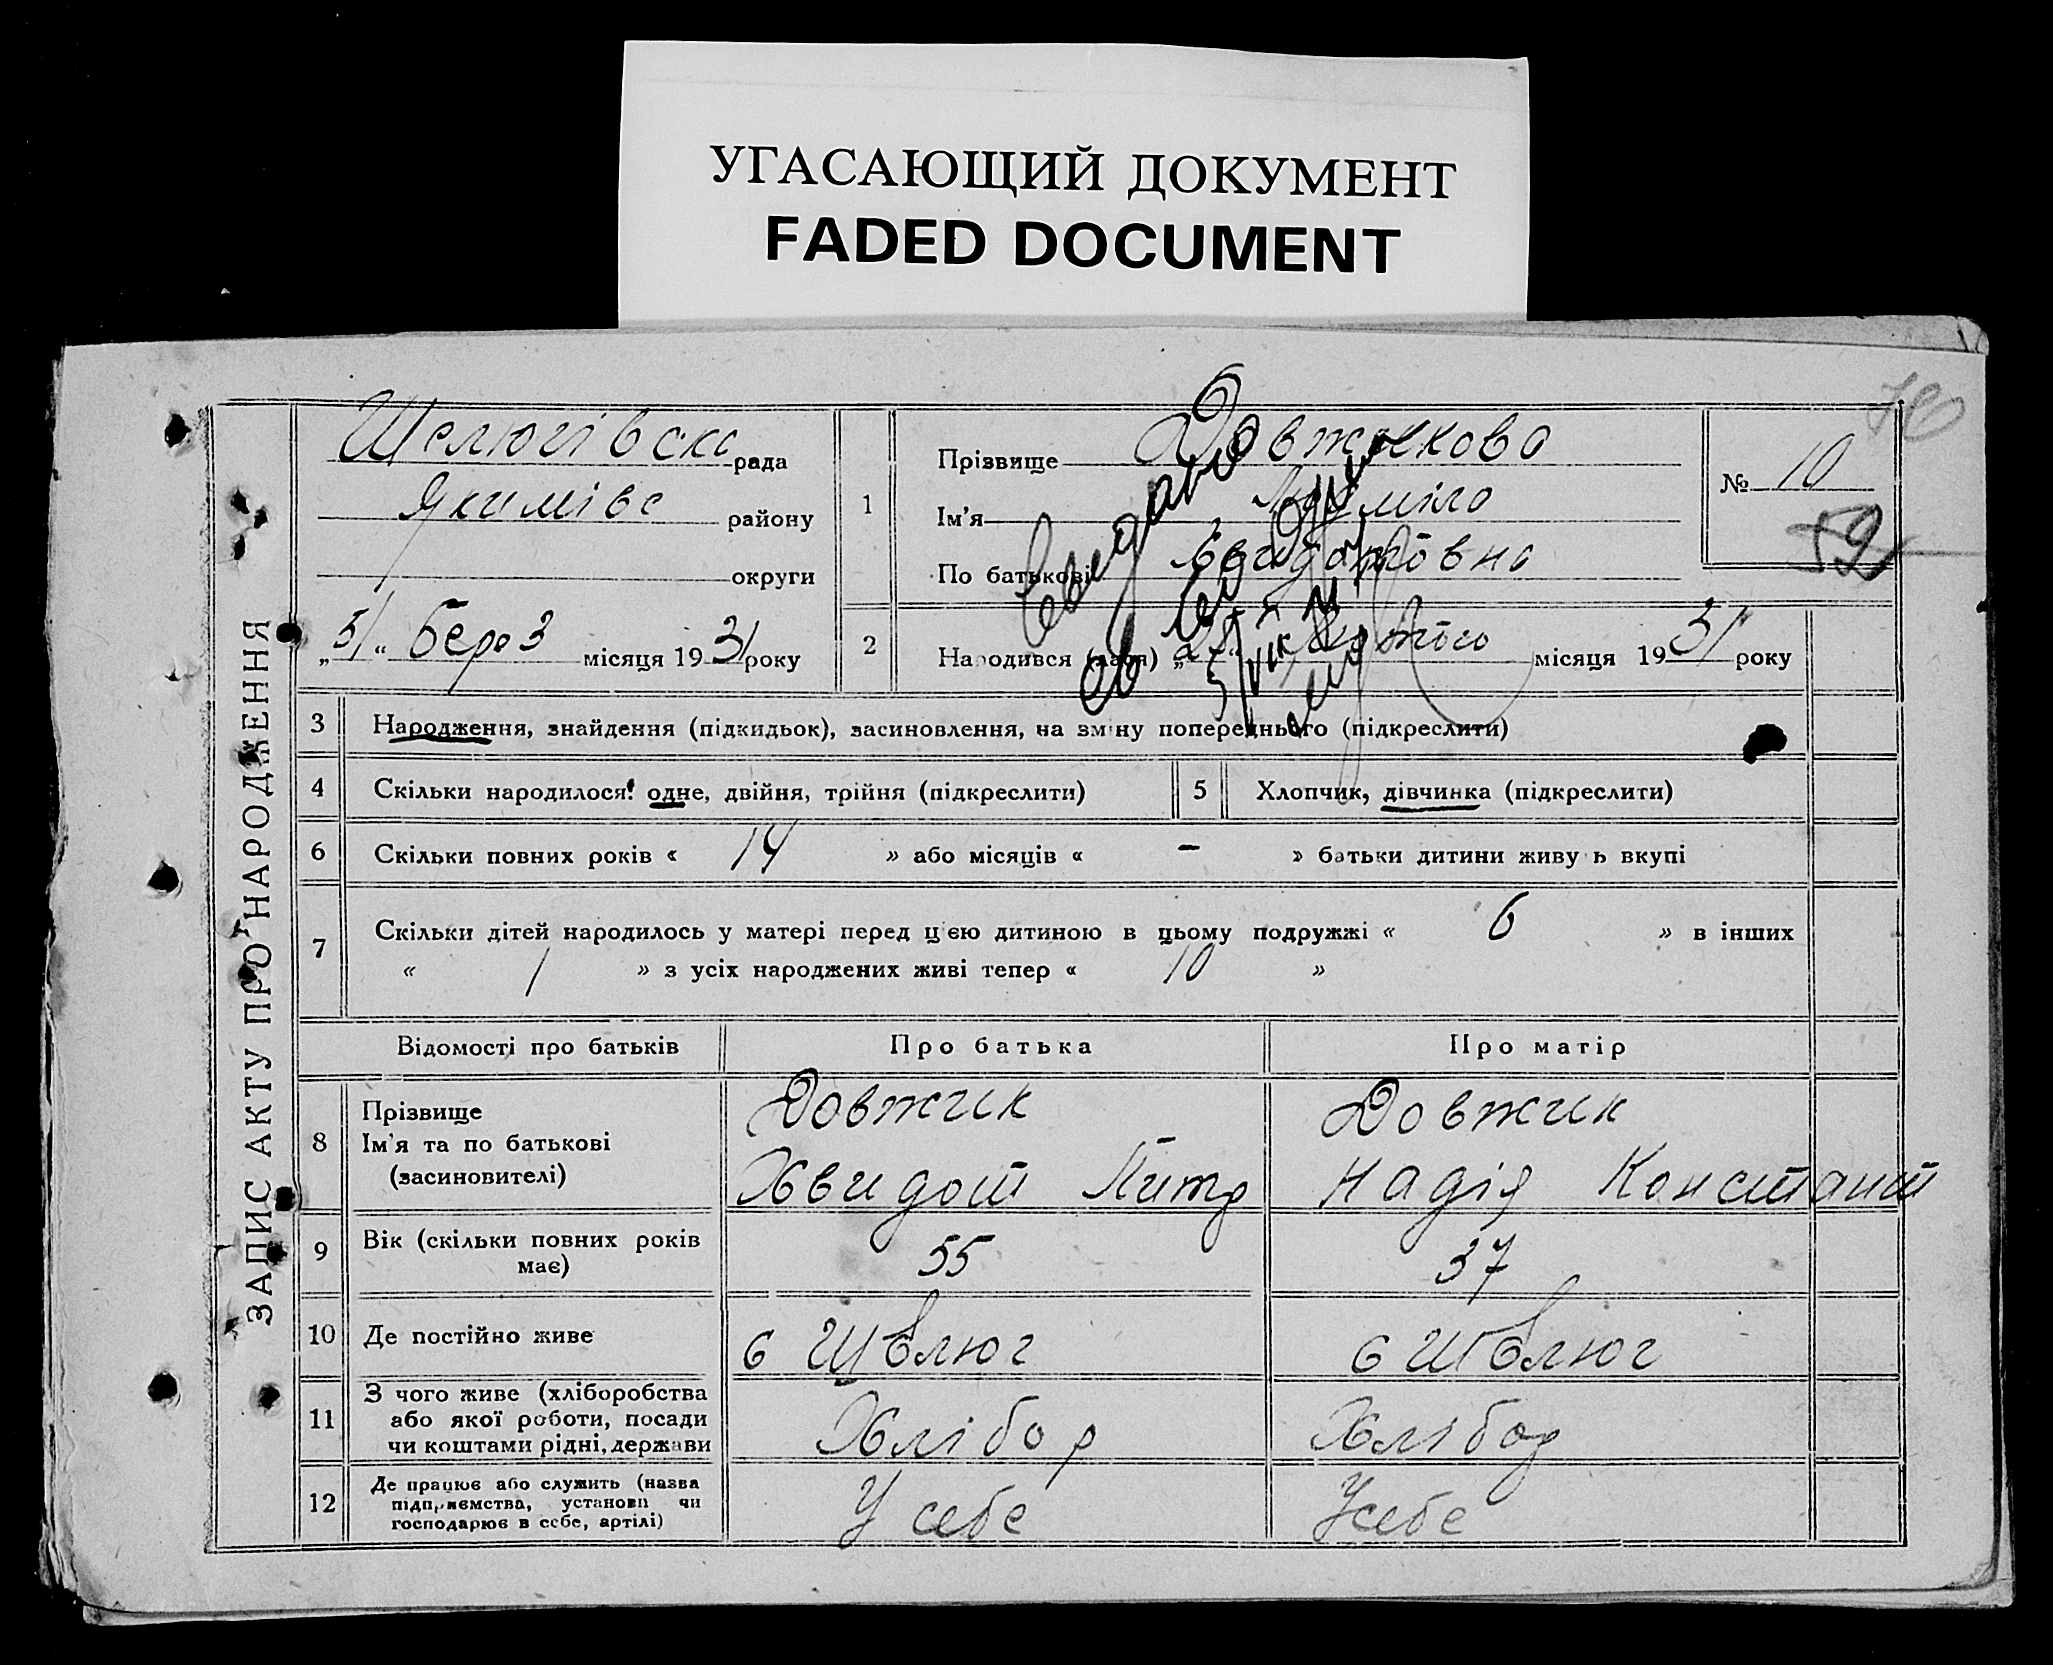 УГАСАЮЩИЙ ДОКУМЕНТ
FADED DOCUMENT
ЗАПИС АКТУ ПРО НАРОДЖЕННЯ
Шелюгівска рада
Якимівс району
округи
„5/“ Берез місяця 1931 року
1
Прізвище Довжикова
Ім'я
По батькові
№ 10
59
2
Народився (лася) „ “ Лютого місяця 1931 року
3 Народження, знайдення (підкидьок), засиновлення, на зміну попереднього (підкреслити)
4 Скільки народилося: одне, двійня, трійня (підкреслити)
5 Хлопчик, дівчинка (підкреслити)
6 Скільки повних років « 14 » або місяців « – » батьки дитини живуть вкупі
7 Скільки дітей народилось у матері перед цією дитиною в цьому подружжі « 6 » в інших
« 1 » з усіх народжених живі тепер « 10 »
Відомості про батьків Про батька Про матір
8 Прізвище Довжик Довжик
Ім'я та по батькові
(засиновителі) Хвидот Питр Надія Констант
9 Вік (скільки повних років
має) 55 37
10 Де постійно живе с Шелюг с Шелюг
11 З чого живе (хліборобства
або якої роботи, посади
чи коштами рідні, держави Хлібор Хлібор
12 Де працює або служить (назва
підприємства, установи чи
господарює в себе, артілі) У себе У себе